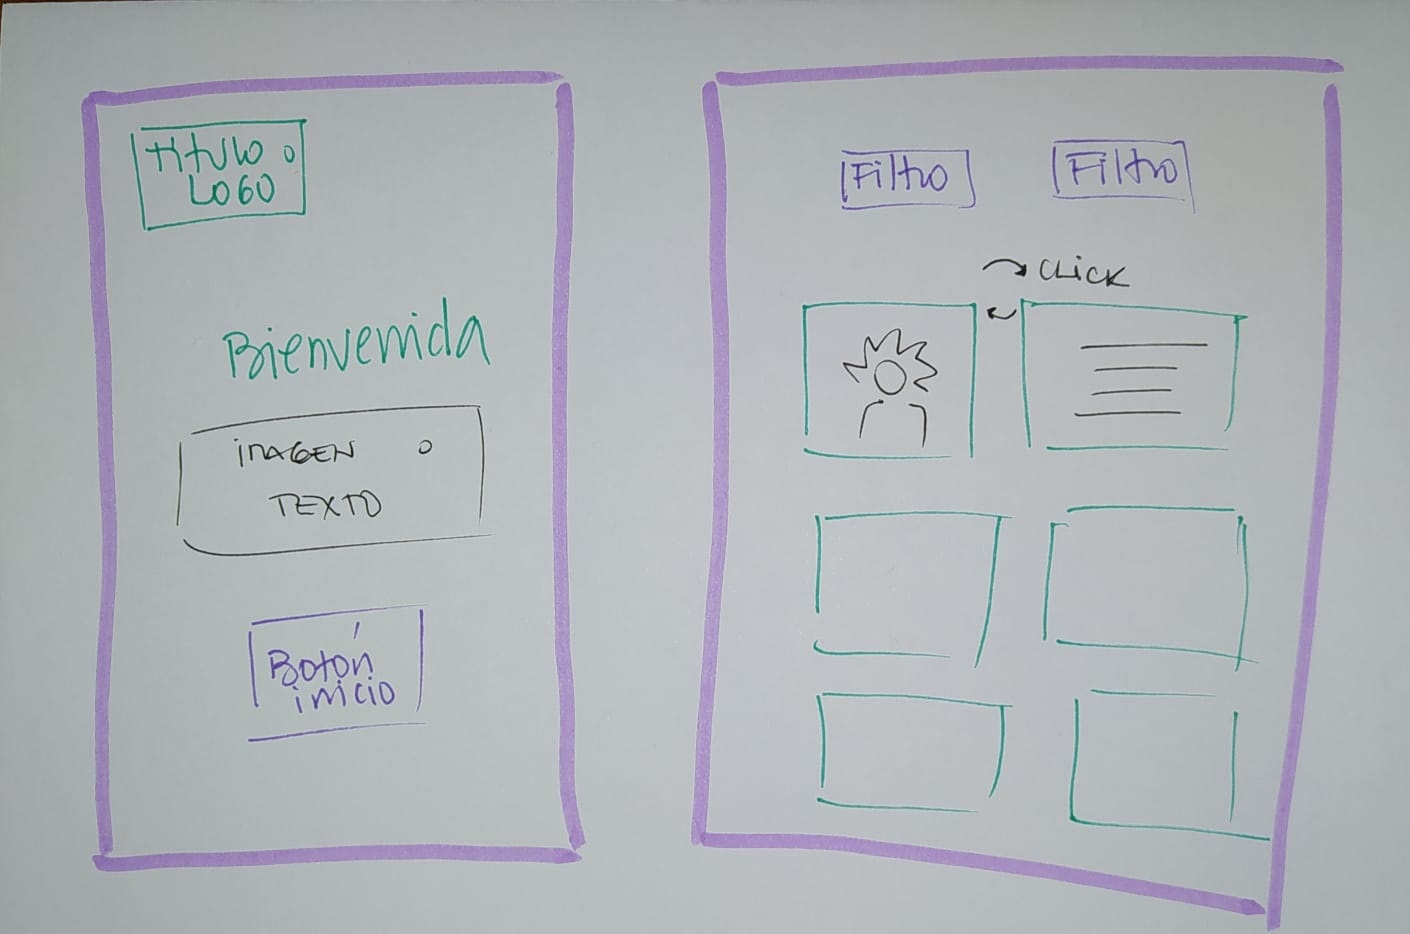 Título o
LOGO
Bienvenida
iMAGEN o
TEXTO
Botón
inicio
Filtro
Filtro
CLiCK